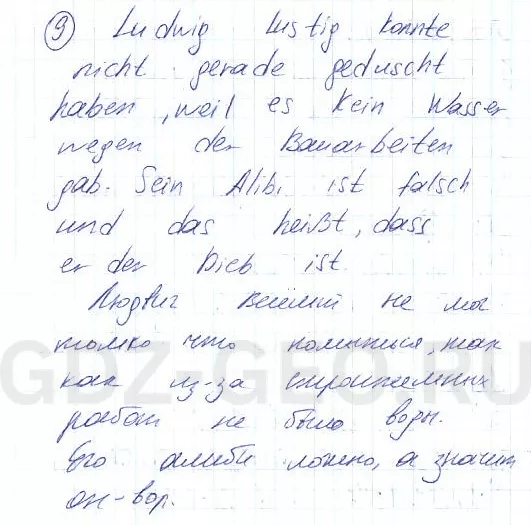 9 Ludwig Lustig konnte
nicht gerade geduscht
haben, weil es kein Wasser
wegen der Bauarbeiten
gab. Sein Alibi ist falsch
und das heißt, dass
er der Dieb ist.
Людвиг Веселый не мог
только что помыться, так
как из-за строительных
работ не было воды.
Его алиби ложно, а значит
он-вор.
GDZ-GEO.RU